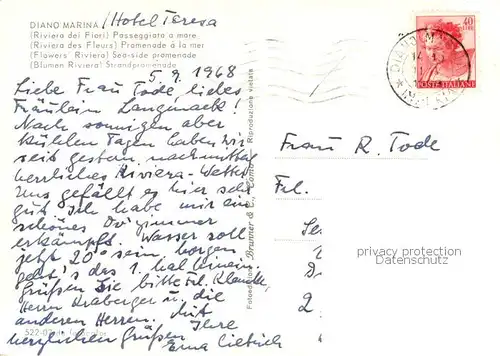 DIANO MARINA / Hotel Teresa
(Riviera dei Fiori) Passeggiata a mare
(Riviera des Fleurs) Promenade à la mer
(Flowers' Riviera) Sea-side promenade
(Blumen Riviera) Strandpromenade
5.9.1968
Liebe Frau Tode, liebes
Fräulein Langmack!
Nach sonnigen aber
kühlen Tagen haben wir
seit gestern nachmittag
herrliches Riviera-Wetter
Uns gefällt es hier sehr
gut. Ich habe mir ein
schönes Dz immer
erkämpft. Wasser soll
jetzt 20° sein, morgen
geht's das 1. mal hinein.
Grüßen Sie bitte Frl. Klancke,
Herrn Kraberger u. die
anderen Herren. Mit
herzlichen Grüßen Ihre
Erna
522-02
Brunner & C., Como
Riproduzione vietata
40
LIRE
POSTE ITALIANE
DIANO MARINA
Frau R. Tode
Frl.
2
privacy protection
Datenschutz